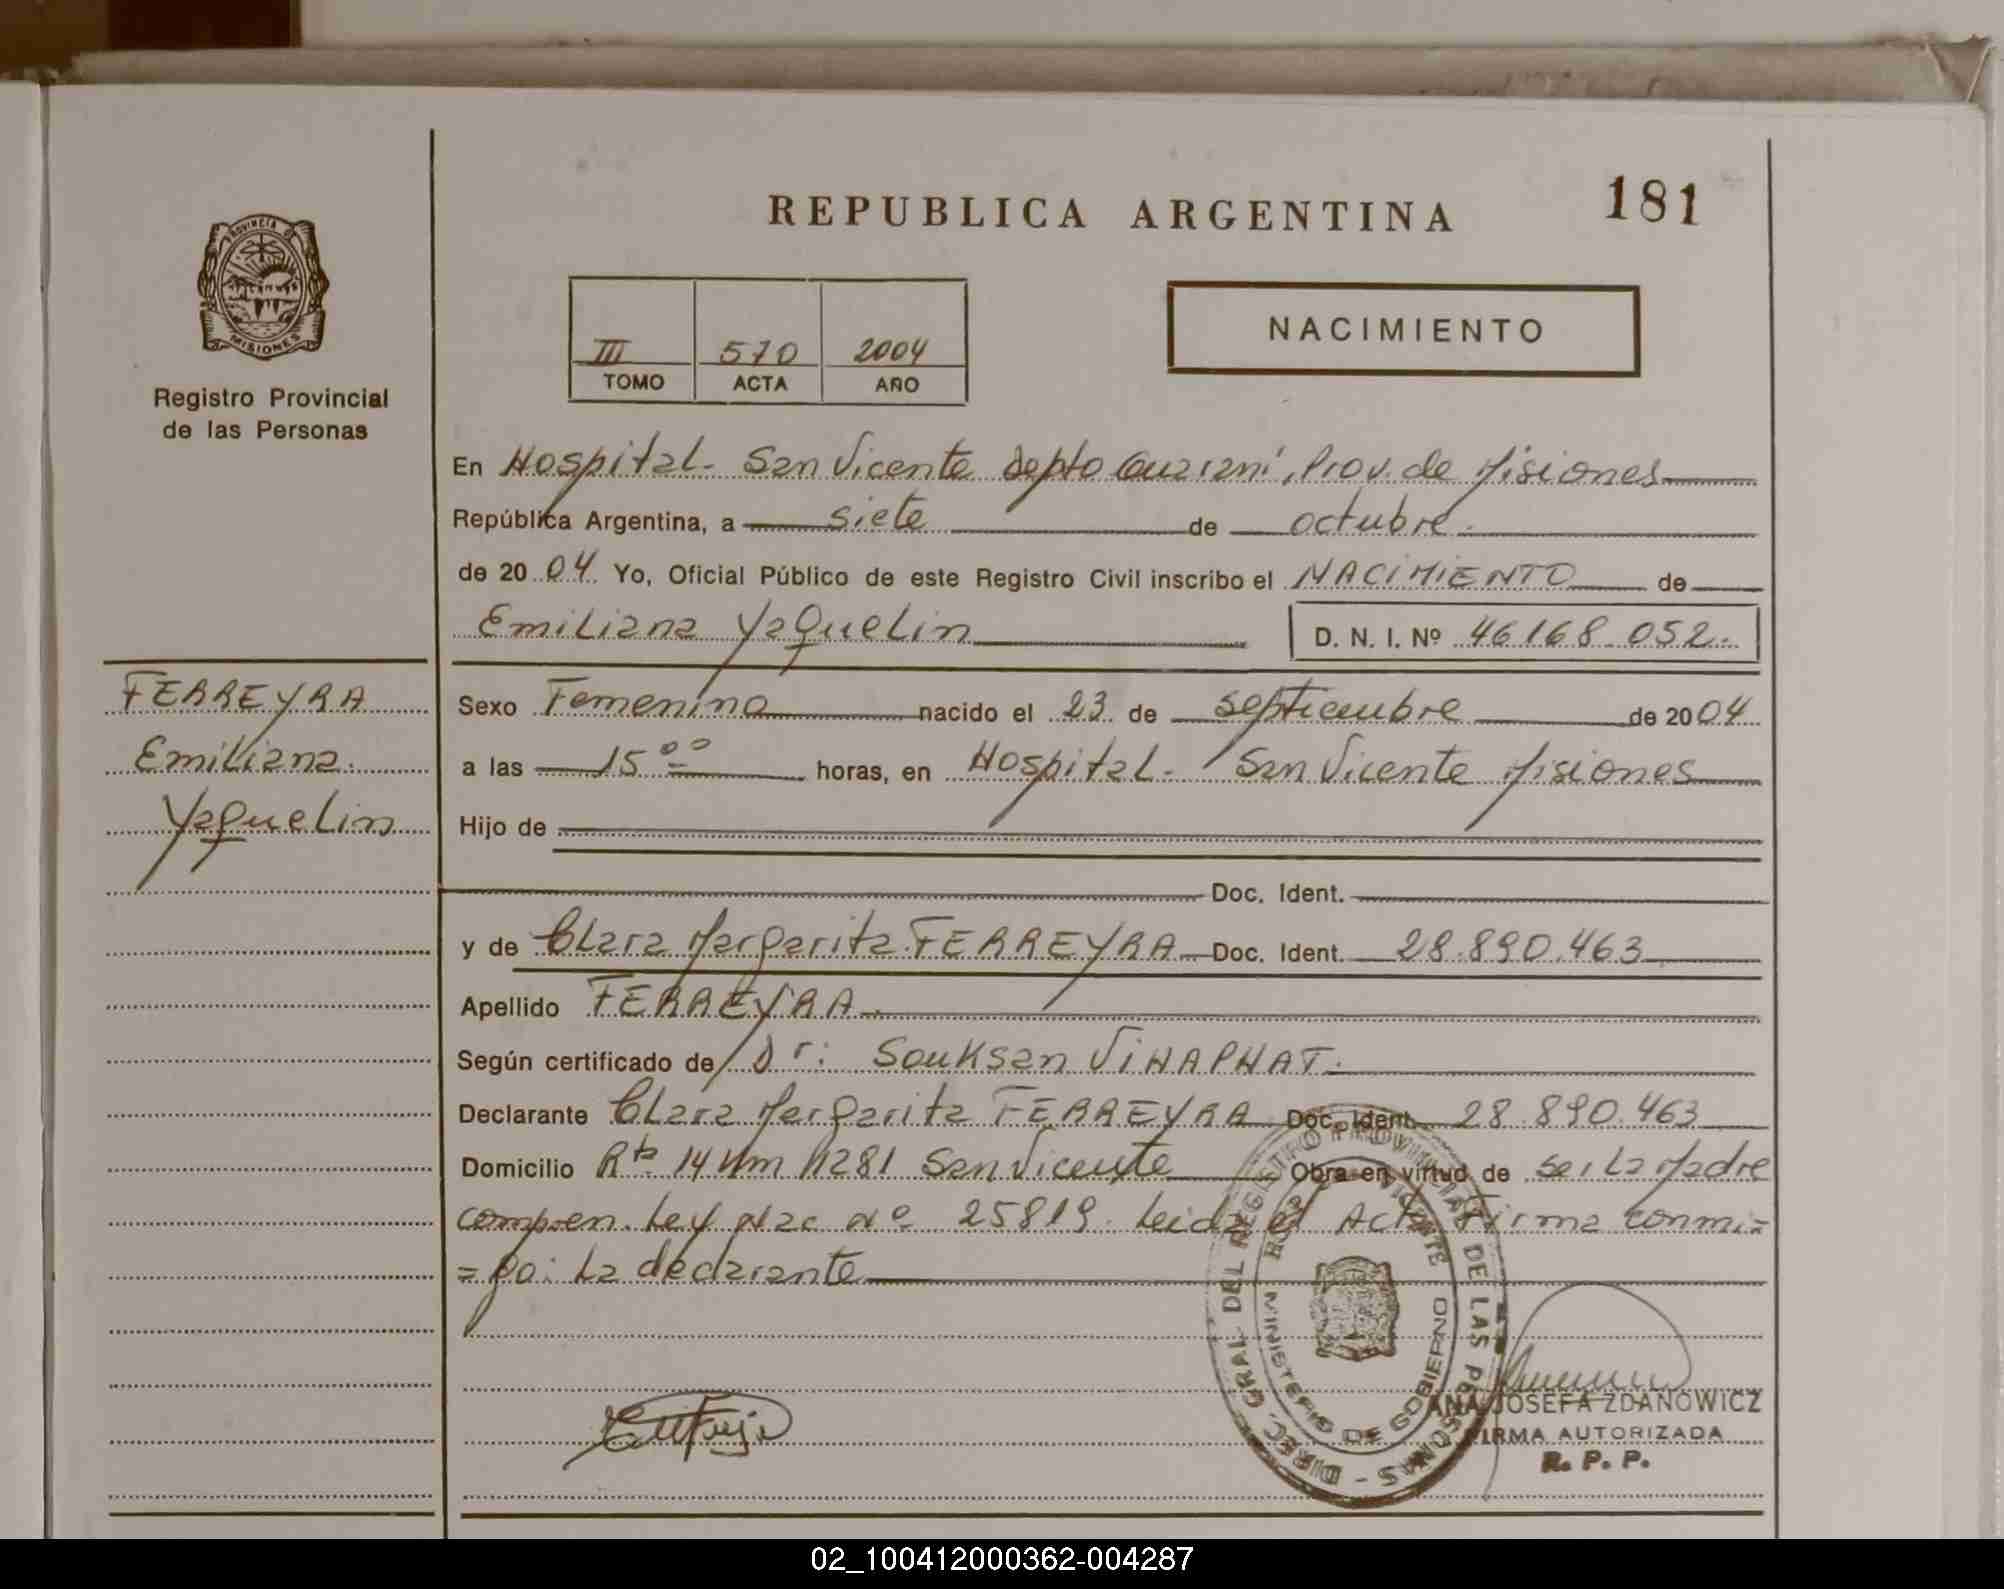 REPUBLICA ARGENTINA
181
PROVINCIA DE
MISIONES
Registro Provincial
de las Personas
III 570 2004
TOMO ACTA AÑO
NACIMIENTO
En Hospital- San Vicente Depto Guarani, Prov. de Misiones
República Argentina, a siete de octubre.
de 20 04. Yo, Oficial Público de este Registro Civil inscribo el NACIMIENTO de
Emiliana Yaquelin D. N. I. Nº 46168 052.
FERREYRA
Emiliana.
Yaquelin
Sexo Femenino nacido el 23 de septiembre de 2004
a las 15 ºº horas, en Hospital- San Vicente Misiones
Hijo de
Doc. Ident.
y de Clara Margarita FERREYRA Doc. Ident. 28.890.463
Apellido FERREYRA.
Según certificado de Dr: Souksan VIHAPHAT.
Declarante Clara Margarita FERREYRA Doc. Ident. 28.890.463
Domicilio Rta 14 Km 1281 San Vicente Obra en virtud de ser la Madre
compren. Ley Nac Nº 25819. Leida el Acta Firma conmi=
=go: La declarante
DIREC. GRAL. DEL REGISTRO PROVINCIAL DE LAS PERSONAS -
MINISTERIO DE GOBIERNO
ANA JOSEFA ZDANOWICZ
FIRMA AUTORIZADA
R. P. P.
02_100412000362-004287